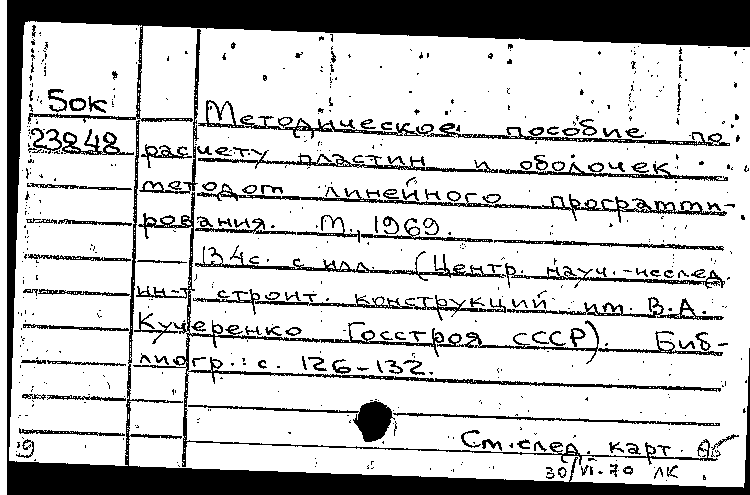 5ок
23242
Методическое пособие по
расчету пластин и оболочек
методом линейного программи-
рования. М., 1969.
134с. с илл. (Центр. науч.-исслед.
ин-т строит. конструкций им. В.А.
Кучеренко Госстроя СССР). Биб-
лиогр.: с. 126-132.
См. след. карт.
30/VI-70 ЛК